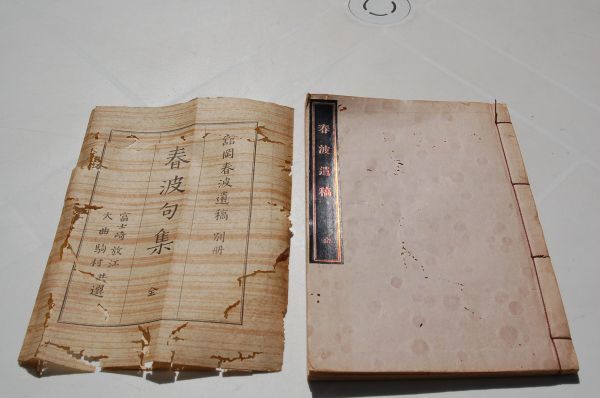 舘岡春波遺稿 別冊
春波句集 全
富士崎放江
大曲駒村 共選
春波遺稿 全